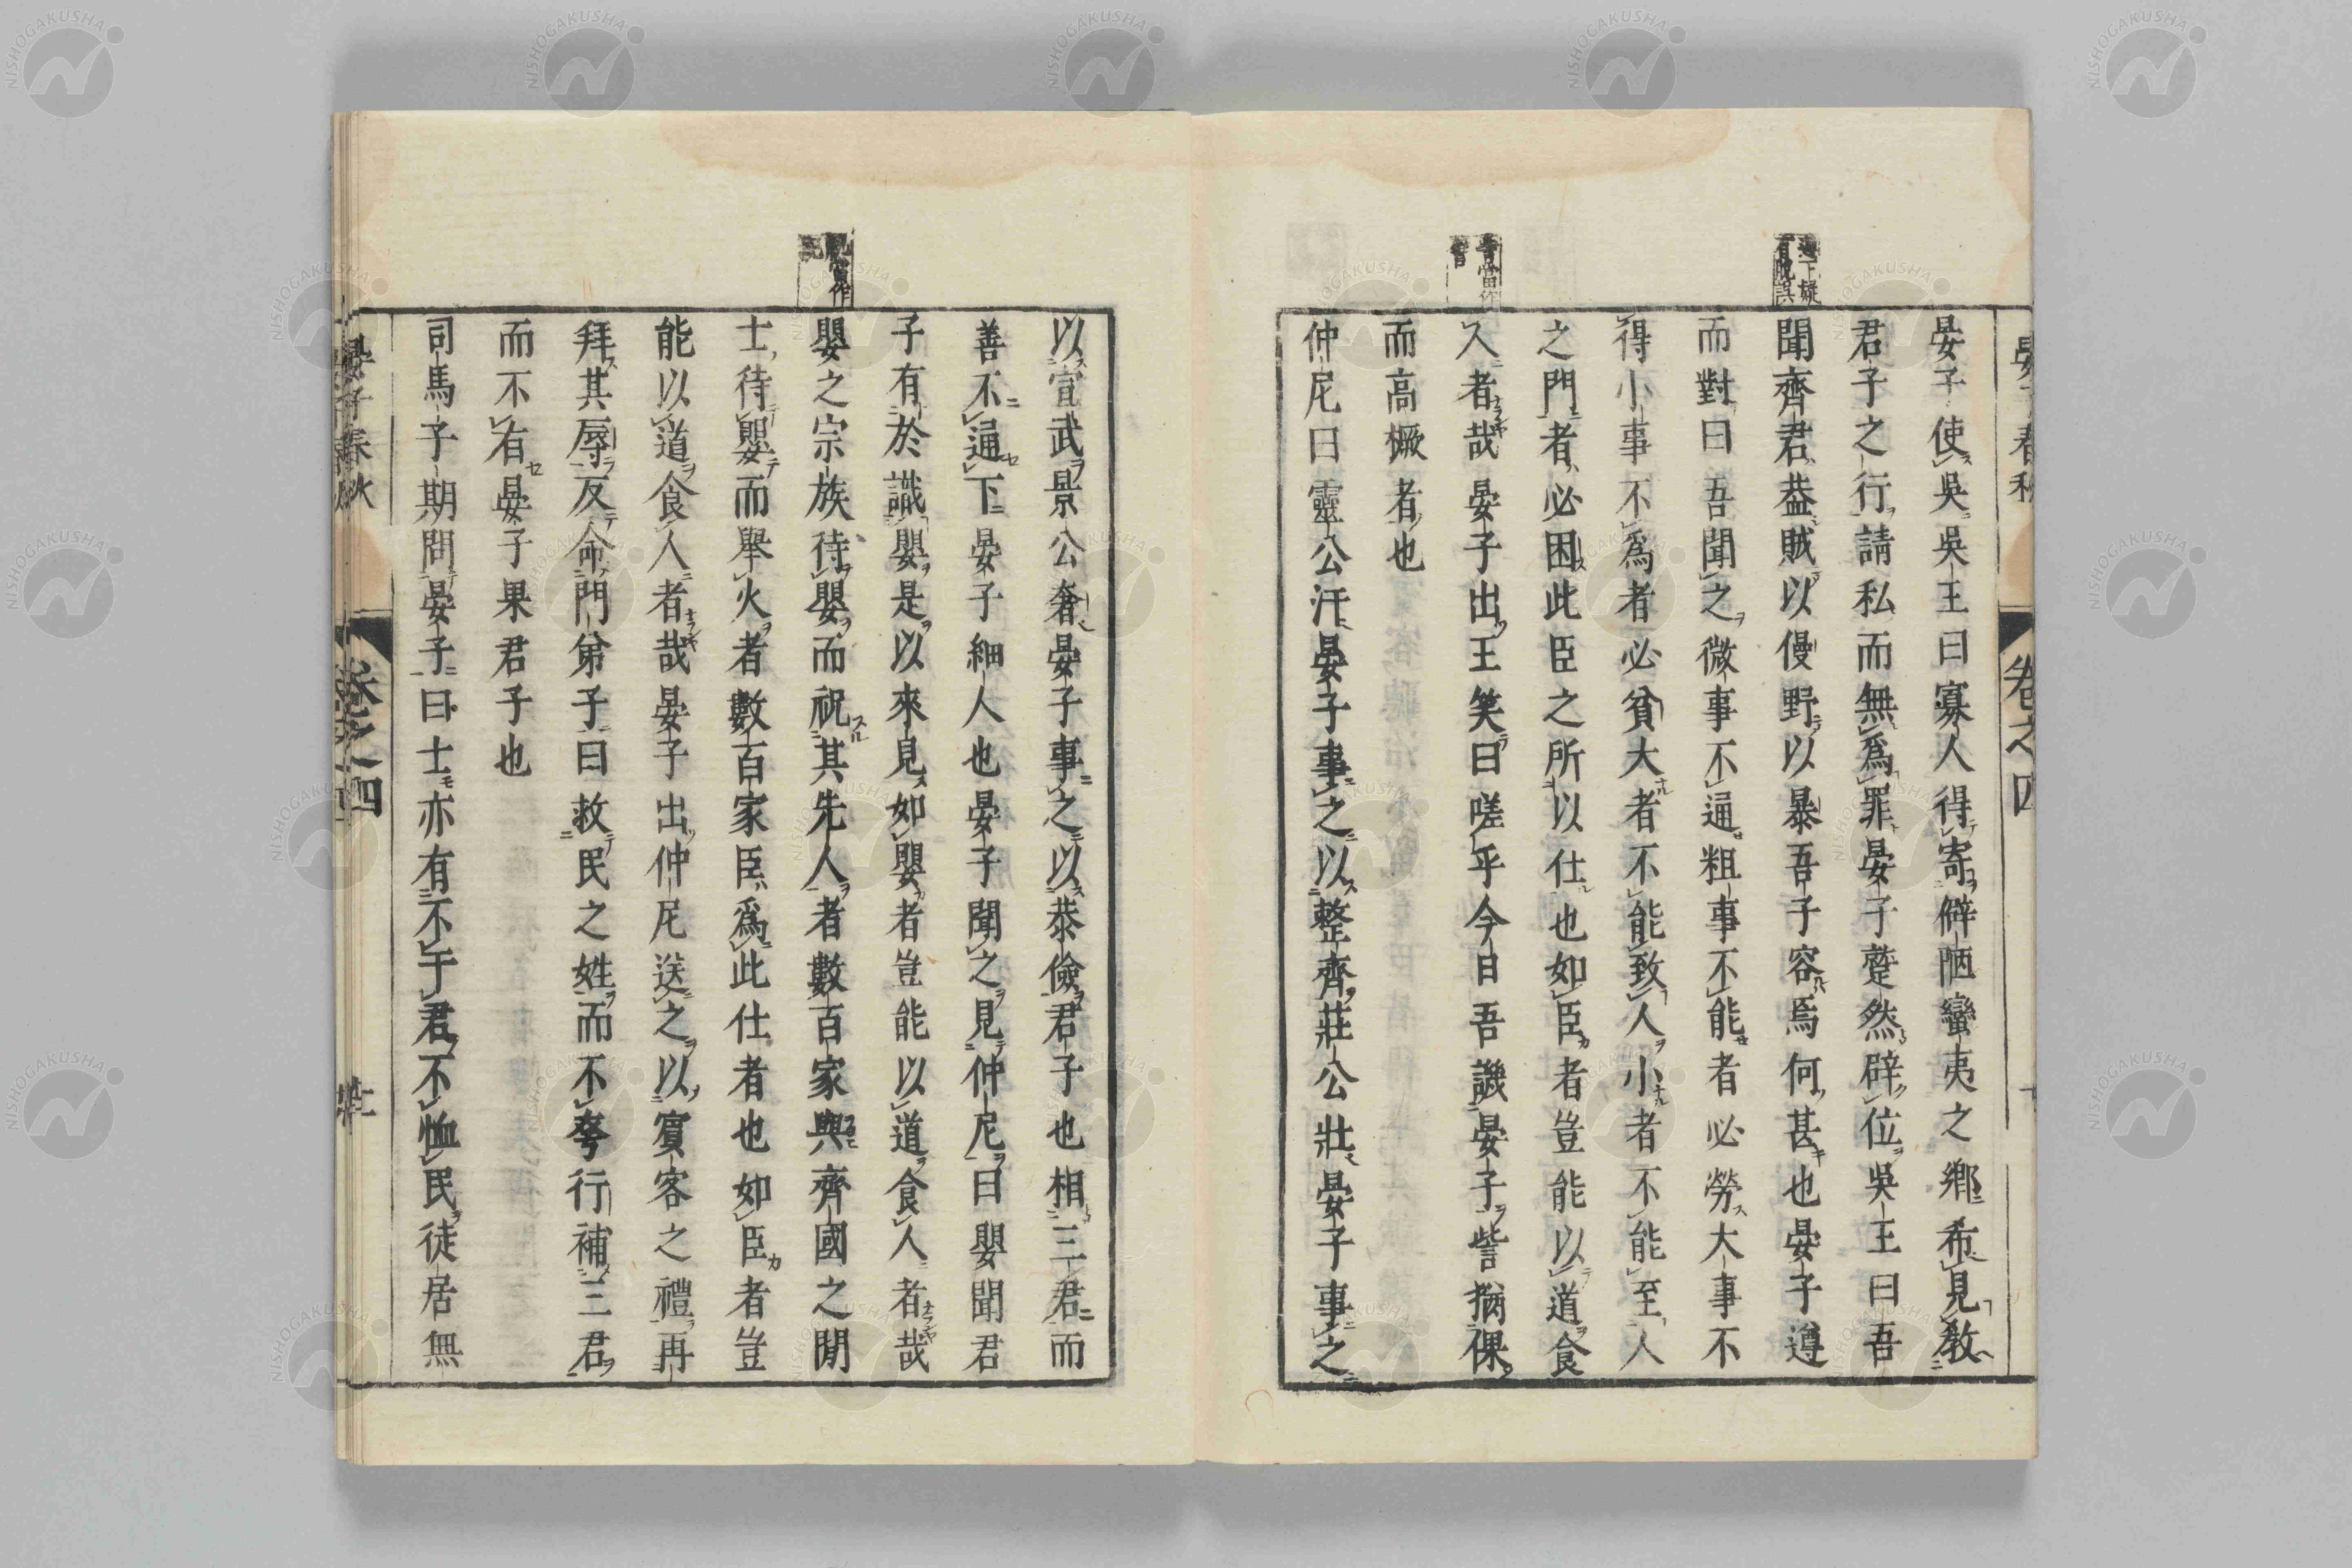 遵下疑
有脫誤
晏子春秋
卷之四
晏子使吳吳王曰寡人得寄僻陋蠻夷之鄉希見敎
君子之行請私而無爲罪晏子蹵然辟位吳王曰吾
聞齊君葢賊以僈野以暴吾子容焉何甚也晏子遵
而對曰吾聞之微事不通粗事不能者必勞大事不
得小事不爲者必貧大者不能致人小者不能至人
之門者必困此臣之所以仕也如臣者豈能以道食
人者哉晏子出王笑曰嗟乎今日吾譏晏子訾猶倮
而高橛者也
仲尼曰靈公汙晏子事之以整齊莊公壯晏子事之
以宣武景公奢晏子事之以恭儉君子也相三君而
善不通下晏子細人也晏子聞之見仲尼曰嬰聞君
子有於識嬰是以來見如嬰者豈能以道食人者哉
嬰之宗族待嬰而祝其先人者數百家與齊國之閒
士待嬰而舉火者數百家臣爲此仕者也如臣者豈
能以道食人者哉晏子出仲尼送之以賓客之禮再
拜其辱反命門弟子曰救民之姓而不夸行補三君
而不有晏子果君子也
司馬子期問晏子曰士亦有不于君不恤民徒居無
晏子春秋
卷之四
NISHOGAKUSHA